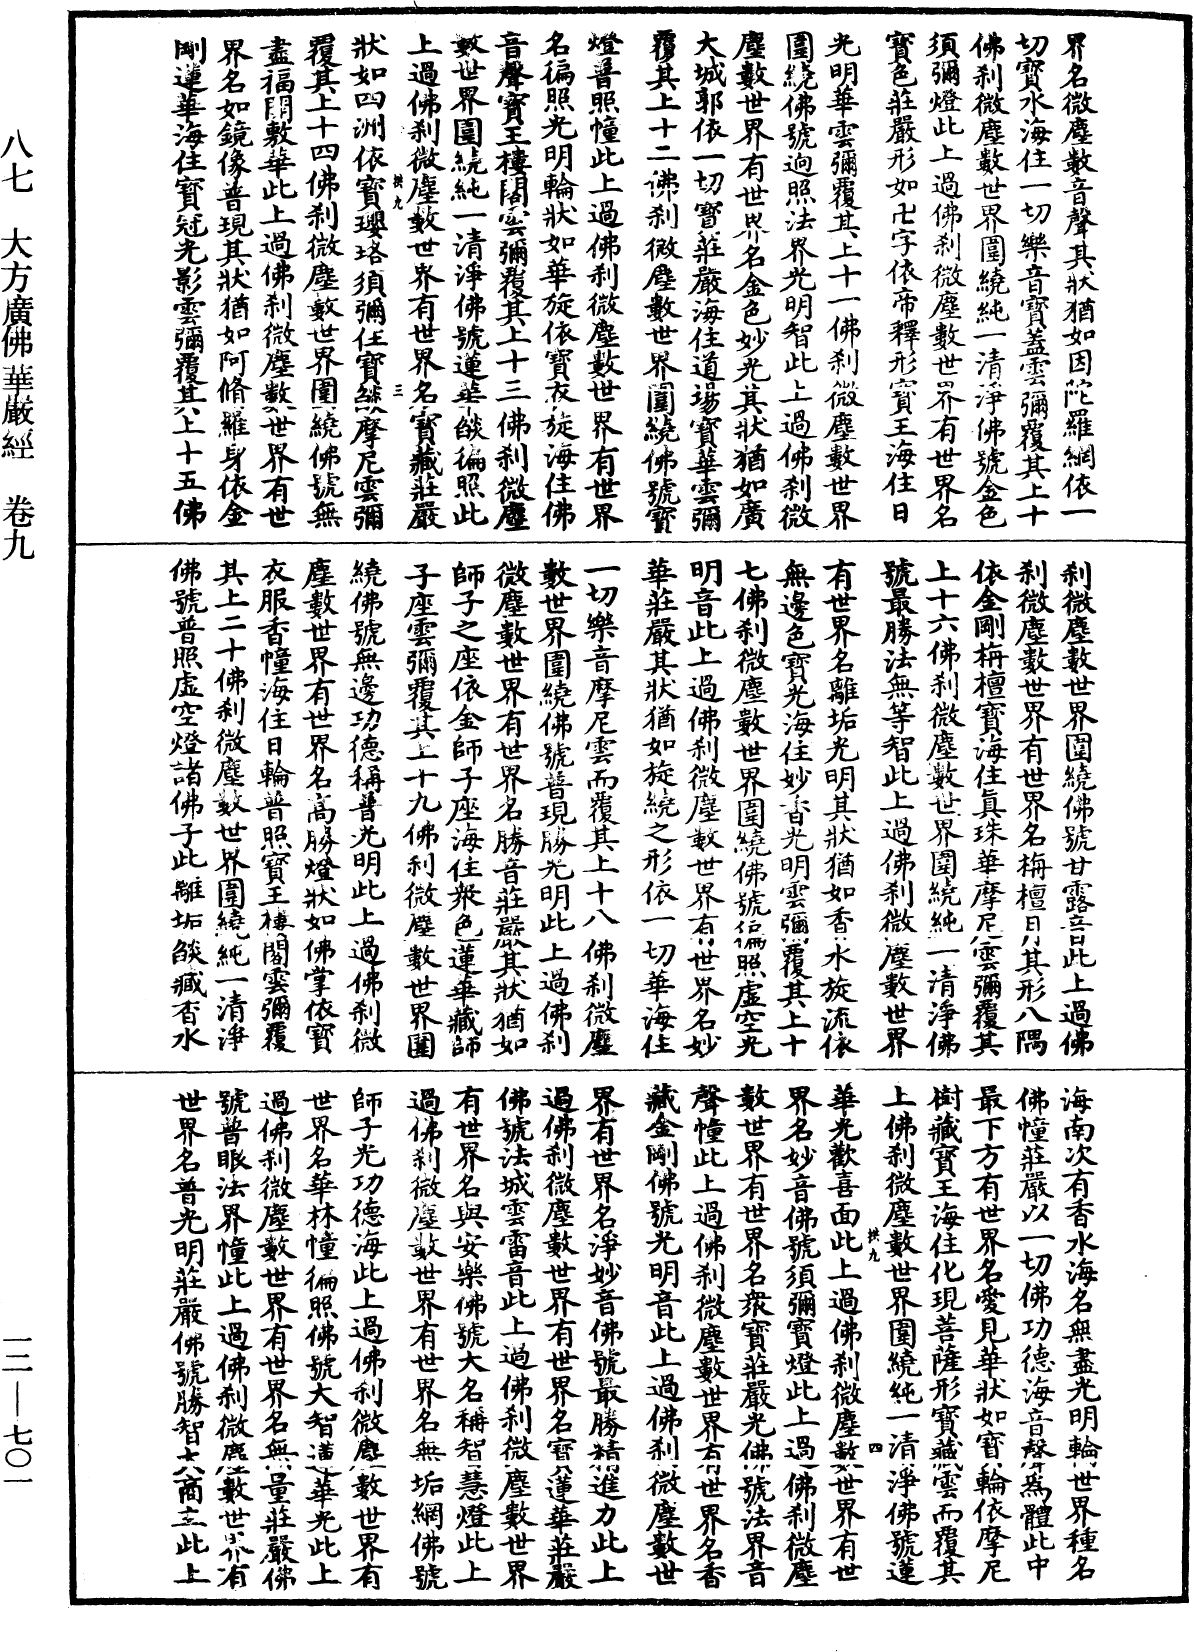 界名微塵數音聲其狀猶如因陀羅網依一
切寶水海住一切樂音寶蓋雲彌覆其上十
佛刹微塵數世界圍繞純一清淨佛號金色
須彌燈此上過佛刹微塵數世界有世界名
寶色莊嚴形如卍字依帝釋形寶王海住日
光明華雲彌覆其上十一佛刹微塵數世界
圍繞佛號迥照法界光明智此上過佛刹微
塵數世界有世界名金色妙光其狀猶如廣
大城郭依一切寶莊嚴海住道場寶華雲彌
覆其上十二佛刹微塵數世界圍繞佛號寶
燈普照幢此上過佛刹微塵數世界有世界
名徧照光明輪狀如華旋依寶衣旋海住佛
音聲寶王樓閣雲彌覆其上十三佛刹微塵
數世界圍繞純一清淨佛號蓮華燄徧照此
上過佛刹微塵數世界有世界名寶藏莊嚴
拱九 三
狀如四洲依寶瓔珞須彌住寶燄摩尼雲彌
覆其上十四佛刹微塵數世界圍繞佛號無
盡福開敷華此上過佛刹微塵數世界有世
界名如鏡像普現其狀猶如阿脩羅身依金
剛蓮華海住寶冠光影雲彌覆其上十五佛
刹微塵數世界圍繞佛號甘露音此上過佛
刹微塵數世界有世界名栴檀月其形八隅
依金剛栴檀寶海住真珠華摩尼雲彌覆其
上十六佛刹微塵數世界圍繞純一清淨佛
號最勝法無等智此上過佛刹微塵數世界
有世界名離垢光明其狀猶如香水旋流依
無邊色寶光海住妙香光明雲彌覆其上十
七佛刹微塵數世界圍繞佛號徧照虛空光
明音此上過佛刹微塵數世界有世界名妙
華莊嚴其狀猶如旋繞之形依一切華海住
一切樂音摩尼雲而覆其上十八佛刹微塵
數世界圍繞佛號普現勝光明此上過佛刹
微塵數世界有世界名勝音莊嚴其狀猶如
師子之座依金師子座海住衆色蓮華藏師
子座雲彌覆其上十九佛刹微塵數世界圍
繞佛號無邊功德稱普光明此上過佛刹微
塵數世界有世界名高勝燈狀如佛掌依寶
衣服香幢海住日輪普照寶王樓閣雲彌覆
其上二十佛刹微塵數世界圍繞純一清淨
佛號普照虛空燈諸佛子此離垢燄藏香水
海南次有香水海名無盡光明輪世界種名
佛幢莊嚴以一切佛功德海音聲爲體此中
最下方有世界名愛見華狀如寶輪依摩尼
樹藏寶王海住化現菩薩形寶藏雲而覆其
上佛刹微塵數世界圍繞純一清淨佛號蓮
拱九 四
華光歡喜面此上過佛刹微塵數世界有世
界名妙音佛號須彌寶燈此上過佛刹微塵
數世界有世界名衆寶莊嚴光佛號法界音
聲幢此上過佛刹微塵數世界有世界名香
藏金剛佛號光明音此上過佛刹微塵數世
界有世界名淨妙音佛號最勝精進力此上
過佛刹微塵數世界有世界名寶蓮華莊嚴
佛號法城雲雷音此上過佛刹微塵數世界
有世界名與安樂佛號大名稱智慧燈此上
過佛刹微塵數世界有世界名無垢網佛號
師子光功德海此上過佛刹微塵數世界有
世界名華林幢徧照佛號大智蓮華光此上
過佛刹微塵數世界有世界名無量莊嚴佛
號普眼法界幢此上過佛刹微塵數世界有
世界名普光明莊嚴佛號勝智大商主此上
八七 大方廣佛華嚴經 卷九
一二—七〇一